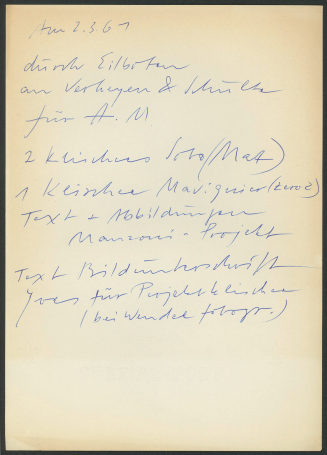 Am 2.3.61
durch Eilboten
an Verhagen & Schulte
für A. M
2 Klischees Soto (Mat)
1 Klischee Mavignier (zero 2)
Text + Abbildungen
Manzoni - Projekt
Text Bildunterschrift
Yves für Projektklischee
(bei Wendel fotogr.)